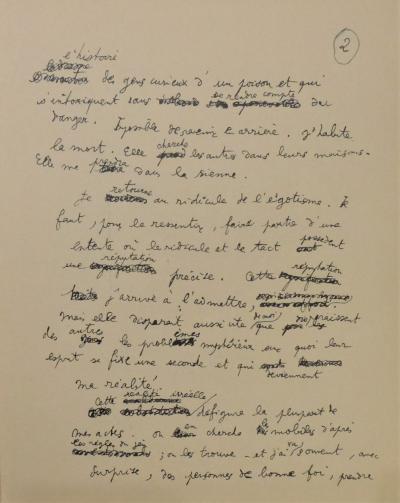 2
l'histoire
des gens curieux d'un poison et qui
s'intoxiquent sans se rendre compte du
danger. Impossible de revenir en arrière. J'habite
la mort. Elle cherche les autres dans leurs maisons.
Elle me prendra dans la sienne.
Je retourne au ridicule de l'égotisme. Il
faut, pour le ressentir, faire partie d'une
entente où le ridicule et le tact possèdent
une réputation précise. Cette réputation
j'arrive à l'admettre,
mais elle disparaît aussi vite que naissent
des autres les problèmes mystérieux sur quoi leur
esprit se fixe une seconde et qui deviennent
ma réalité.
Cette réalité irréelle défigure la plupart de
mes actes. On en cherche les mobiles d'après
les règles du jeu ; on les trouve - et j'ai vu souvent, avec
surprise, des personnes de bonne foi, prendre